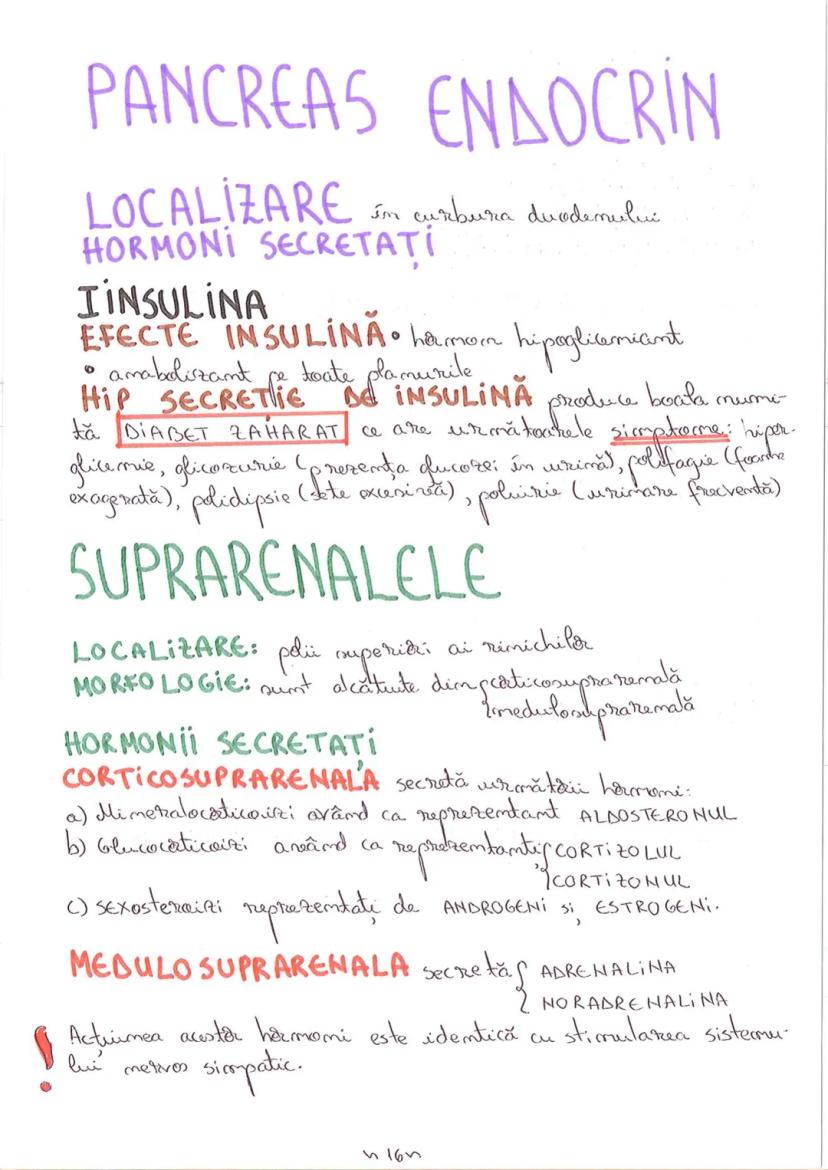 PANCREAS ENDOCRIN
LOCALIZARE în curbura duodenului
HORMONI SECRETAȚI
I INSULINA
EFECTE INSULINĂ • hormon hipoglicemiant
• anabolizant pe toate planurile
HIP SECREȚIE DE INSULINĂ produce boala numi-
tă DIABET ZAHARAT ce are următoarele simptome: hiper-
glicemie, glicozurie (prezența glucozei în urină), polifagie (foame
exagerată), polidipsie (sete excesivă), poliurie (urinare frecventă)
SUPRARENALELE
LOCALIZARE: polii superiori ai rinichilor
MORFOLOGIE: sunt alcătuite din { corticosuprarenală
{ medulosuprarenală
HORMONII SECRETAȚI
CORTICOSUPRARENALA secretă următorii hormoni:
a) Mineralocorticoizi având ca reprezentant ALDOSTERONUL
b) Glucocorticoizi având ca reprezentanți { CORTIZOLUL
{ CORTIZONUL
c) SEXOSTEROIZI reprezentați de ANDROGENI și ESTROGENI.
MEDULOSUPRARENALA secretă { ADRENALINA
{ NORADRENALINA
! Acțiunea acestor hormoni este identică cu stimularea sistemu-
lui nervos simpatic.
~ 16 ~